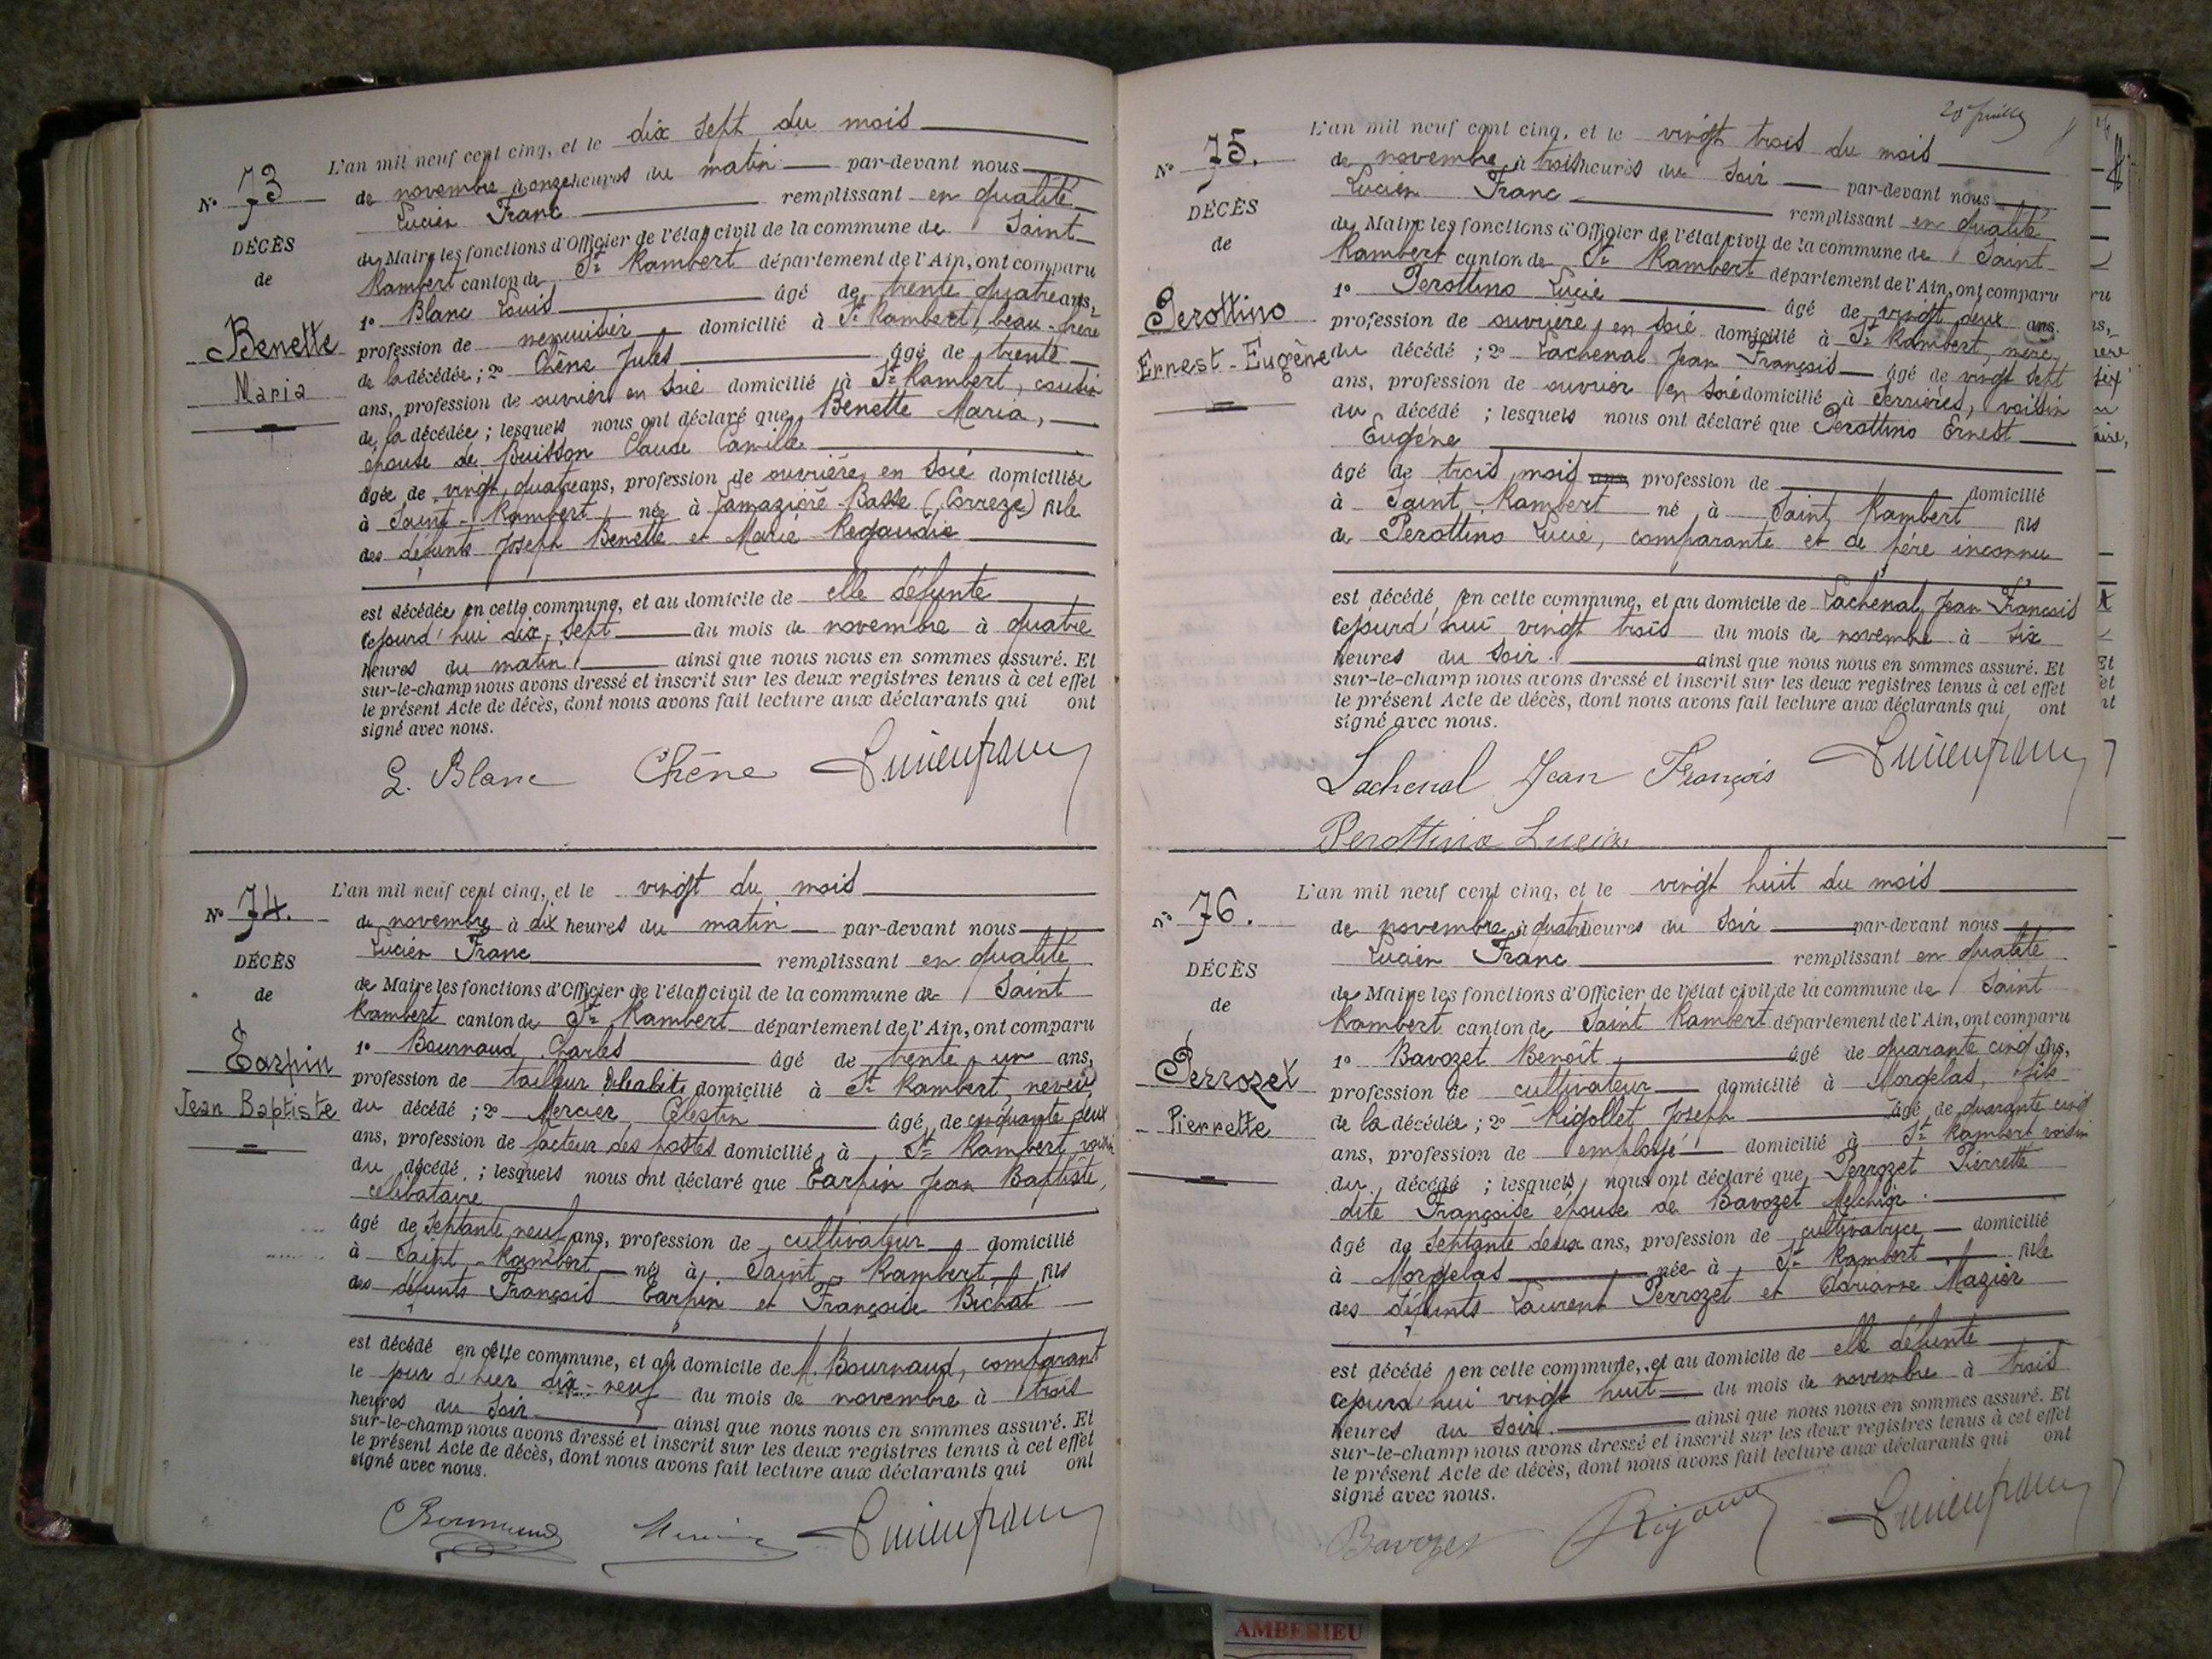 N° 73
DÉCÈS
de
Benette
Maria
L'an mil neuf cent cinq, et le dix sept du mois
de novembre à onze heures du matin par-devant nous
Lucien Franc remplissant en qualité
de Maire les fonctions d'Officier de l'état civil de la commune de Saint
Rambert canton de St Rambert département de l'Ain, ont comparu
1° Blanc Louis âgé de trente quatre ans,
profession de menuisier domicilié à St Rambert, beau-frère
de la décédée ; 2° Chêne Jules âgé de trente
ans, profession de ouvrier en soie domicilié à St Rambert, cousin
de la décédée ; lesquels nous ont déclaré que Benette Maria,
épouse de Buisson Claude Camille
âgée de vingt quatre ans, profession de ouvrière en soie domiciliée
à Saint-Rambert née à Lamazière-Basse (Corrèze) fille
des défunts Joseph Benette et Marie Regaudie
est décédée en cette commune, et au domicile de elle défunte
cejourd'hui dix-sept du mois de novembre à quatre
heures du matin ainsi que nous nous en sommes assuré. Et
sur-le-champ nous avons dressé et inscrit sur les deux registres tenus à cet effet
le présent Acte de décès, dont nous avons fait lecture aux déclarants qui ont
signé avec nous.
L. Blanc Chêne Lucien franc
N° 74.
DÉCÈS
de
Tarpin
Jean Baptiste
L'an mil neuf cent cinq, et le vingt du mois
de novembre à dix heures du matin par-devant nous
Lucien Franc remplissant en qualité
de Maire les fonctions d'Officier de l'état civil de la commune de Saint
Rambert canton de St Rambert département de l'Ain, ont comparu
1° Bournaud Charles âgé de trente un ans,
profession de tailleur d'habits domicilié à St Rambert, neveu
du décédé ; 2° Mercier, Célestin âgé de cinquante deux
ans, profession de facteur des postes domicilié à St Rambert, voisin
du décédé ; lesquels nous ont déclaré que Tarpin Jean Baptiste,
célibataire
âgé de septante neuf ans, profession de cultivateur domicilié
à Saint-Rambert né à Saint Rambert fils
des défunts François Tarpin et Françoise Bichat
est décédé en cette commune, et au domicile de M. Bournaud, comparant
le jour d'hier dix-neuf du mois de novembre à trois
heures du soir ainsi que nous nous en sommes assuré. Et
sur-le-champ nous avons dressé et inscrit sur les deux registres tenus à cet effet
le présent Acte de décès, dont nous avons fait lecture aux déclarants qui ont
signé avec nous.
Bournaud Lucien franc
N° 75.
DÉCÈS
de
Perottino
Ernest-Eugène
L'an mil neuf cent cinq, et le vingt trois du mois
de novembre à trois heures du soir par-devant nous
Lucien Franc remplissant en qualité
de Maire les fonctions d'Officier de l'état civil de la commune de Saint
Rambert canton de St Rambert département de l'Ain, ont comparu
1° Perottino Lucie âgé de vingt deux ans.
profession de ouvrière en soie domicilié à St Rambert, mère
du décédé ; 2° Lachenal Jean François âgé de vingt sept
ans, profession de ouvrier en soie domicilié à Serrières, voisin
du décédé ; lesquels nous ont déclaré que Perottino Ernest
Eugène
âgé de trois mois ans, profession de domicilié
à Saint-Rambert né à Saint Rambert fils
de Perottino Lucie, comparante et de père inconnu
est décédé en cette commune, et au domicile de Lachenal Jean François
cejourd'hui vingt trois du mois de novembre à six
heures du soir. ainsi que nous nous en sommes assuré. Et
sur-le-champ nous avons dressé et inscrit sur les deux registres tenus à cet effet
le présent Acte de décès, dont nous avons fait lecture aux déclarants qui ont
signé avec nous.
Lachenal Jean François Lucien franc
Perottino Lucie
N° 76.
DÉCÈS
de
Perrozet
Pierrette
L'an mil neuf cent cinq, et le vingt huit du mois
de novembre à quatre heures du soir par-devant nous
Lucien Franc remplissant en qualité
de Maire les fonctions d'Officier de l'état civil de la commune de Saint
Rambert canton de Saint Rambert département de l'Ain, ont comparu
1° Bavozet Benoît âgé de quarante cinq ans,
profession de cultivateur domicilié à Morgelas, fils
de la décédée ; 2° Rigollet Joseph âgé de quarante cinq
ans, profession de employé domicilié à St Rambert voisin
du décédé ; lesquels nous ont déclaré que Perrozet Pierrette
dite Françoise épouse de Bavozet Melchior.
âgé de septante deux ans, profession de cultivatrice domicilié
à Morgelas née à St Rambert fille
des défunts Laurent Perrozet et Adrianne Mazier
est décédé en cette commune, et au domicile de elle défunte
cejourd'hui vingt huit du mois de novembre à trois
heures du soir. ainsi que nous nous en sommes assuré. Et
sur-le-champ nous avons dressé et inscrit sur les deux registres tenus à cet effet
le présent Acte de décès, dont nous avons fait lecture aux déclarants qui ont
signé avec nous.
Bavozet Lucien franc
AMBERIEU